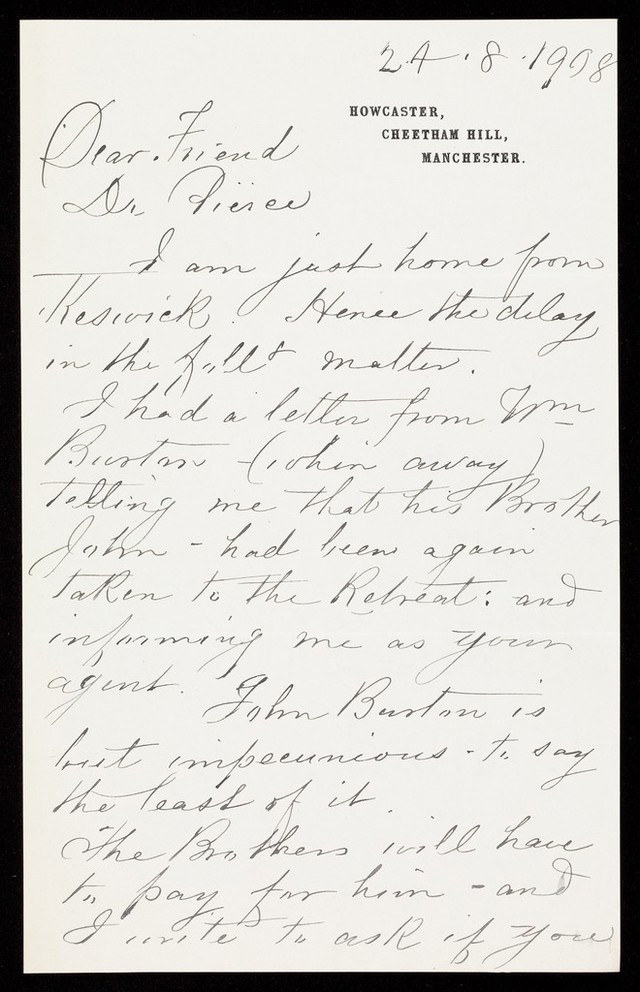 24.8.1908
HOWCASTER,
CHEETHAM HILL,
MANCHESTER.
Dear Friend
Dr. Pierce
I am just home from
Keswick. Hence the delay
in the follg matter.
I had a letter from Wm
Burton - (when away)
telling me that his Brother
John - had been again
taken to the Retreat: and
informing me as your
agent. John Burton is
but impecunious - to say
the least of it.
The Brothers will have
to pay for him - and
I write to ask if you